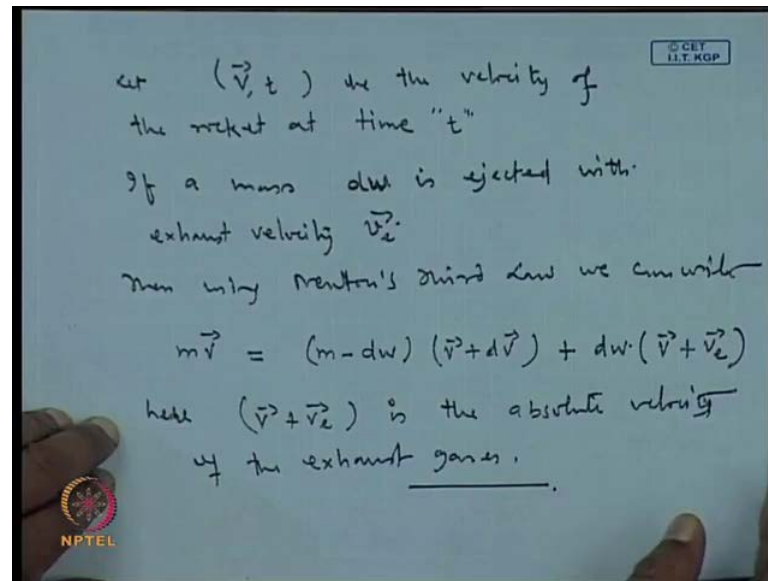 © CET
I.I.T. KGP
Let (v⃗, t) be the velocity of
the rocket at time "t"
If a mass dw is ejected with
exhaust velocity v⃗e.
Then using Newton's Third Law we can write
mv⃗ = (m-dw) (v⃗+dv⃗) + dw.(v⃗+v⃗e)
here (v⃗+v⃗e) is the absolute velocity
of the exhaust gases.
NPTEL